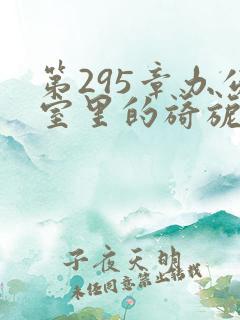 第295章办公
室里的旖旎
子夜天明
未经同意禁止转载